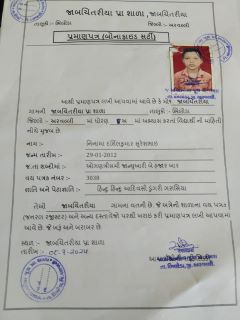 જાબચિતરીયા પ્રા શાળા, જાબચિતરીયા
તાલુકો :- ભિલોડા જિલ્લો :- અરવલ્લી
પ્રમાણપત્ર (બોનાફાઇડ સર્ટી)
આથી પ્રમાણપત્ર લખી આપવામાં આવે છે કે મોજે જાબચિતરીયા
ગામની જાબચિતરીયા પ્રા શાળા તાલુકો :- ભિલોડા
જિલ્લો :- અરવલ્લી માં ધોરણ માં અભ્યાસ કરતાં વિદ્યાર્થી ની માહિતી
નીચે મુજબ છે.
નામ :- નિનામા દર્શિલકુમાર સુરેશભાઇ
જન્મ તારીખ :- 29-01-2012
જ.તા શબ્દોમાં :- ઓગણત્રીસમી જાન્યુઆરી બે હજાર બાર
વય પત્રક નંબર :- 3038
જાતિ અને પેટાજાતિ :- હિન્દુ હિન્દુ આદિવાસી ડુંગરી ગરાસિયા
તેઓ જાબચિતરીયા ગામના વતની છે. જે અત્રેની શાળાના વય પત્રક
(જનરલ રજીસ્ટર) અને અન્ય દસ્તાવેજો પરથી ખરાઇ કરી પ્રમાણપત્ર લખી આપવામાં
આવે છે. જે ખરું અને બરાબર છે.
સ્થળ :- જાબચિતરીયા પ્રા શાળા
તારીખ :- 2024